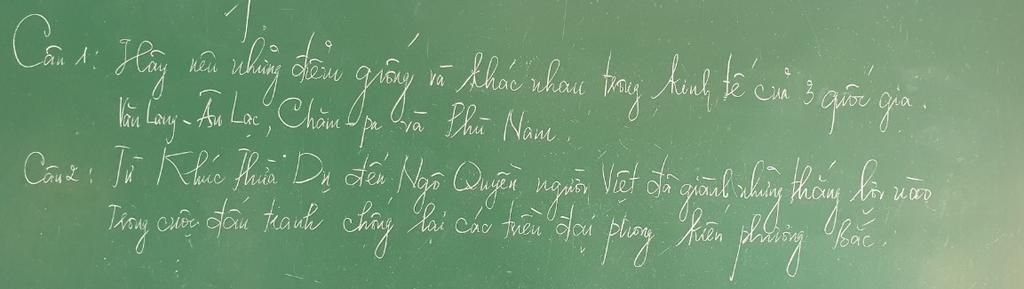 Câu 1: Hãy nêu những điểm giống và khác nhau trong kinh tế của 3 quốc gia.
Văn Lang - Âu Lạc, Chăm-pa và Phù Nam.
Câu 2: Từ Khúc Thừa Dụ đến Ngô Quyền người Việt đã giành những thắng lợi nào
trong cuộc đấu tranh chống lại các triều đại phong kiến phương Bắc.